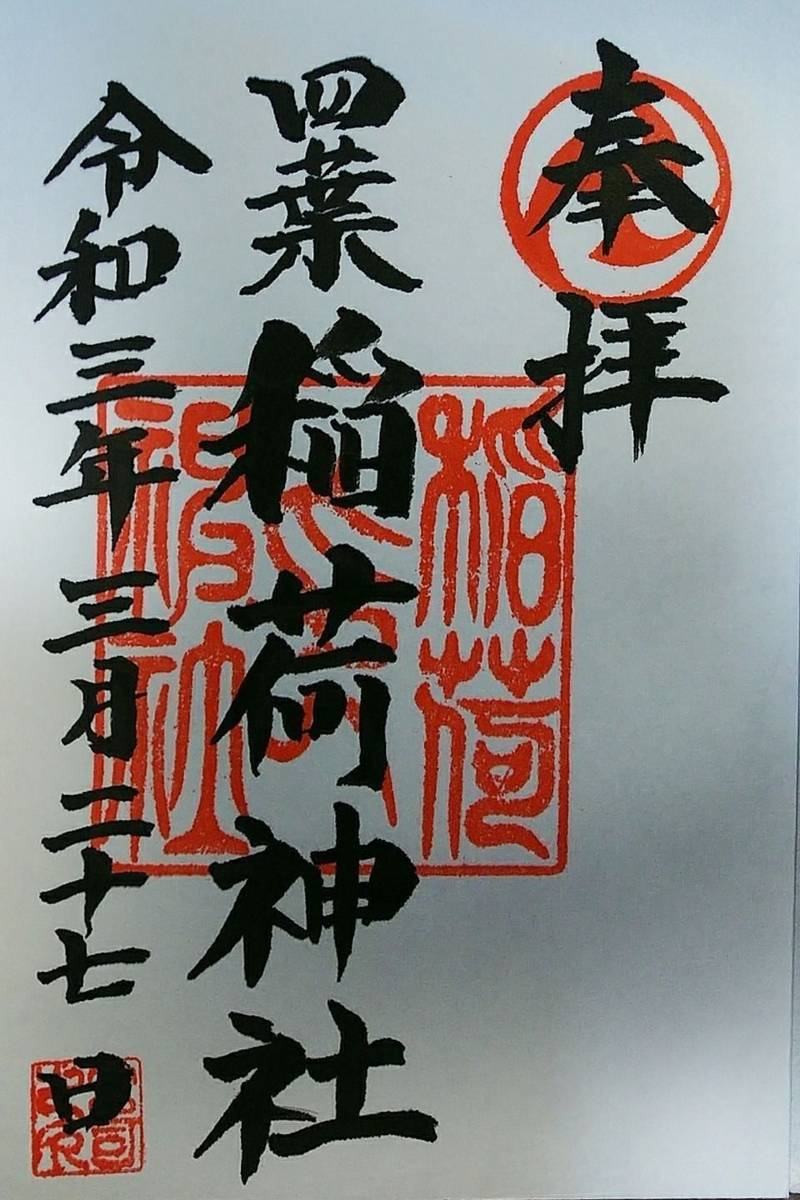 奉拝
四葉稲荷神社
令和三年三月二十七日